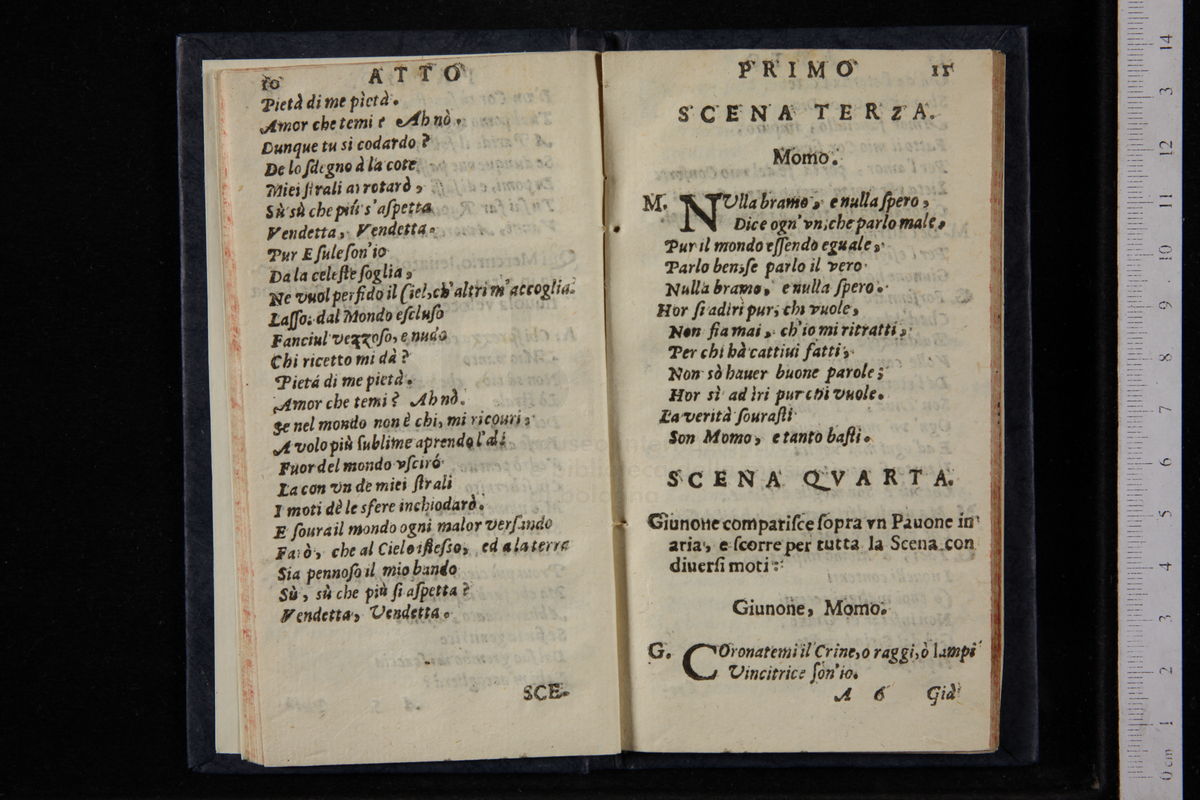 10 ATTO
Pietà di me pietà.
Amor che temi e Ah nò.
Dunque tu si codardo ?
De lo ſdegno à la cote
Miei ſtrali arrotarò,
Sù sù che più s'aſpetta
Vendetta, Vendetta.
Pur Eſule ſon'io
Da la celeſte ſoglia,
Ne vuol perfido il Ciel, ch'altri m'accoglia.
Laſſo; dal Mondo eſcluſo
Fanciul vezzoſo, e nudo
Chi ricetto mi dà ?
Pietá di me pietà.
Amor che temi ? Ah nò.
Se nel mondo non è chi, mi ricouri,
A volo più ſublime aprendo l'ali
Fuor del mondo vſciró
La con vn de miei ſtrali
I moti dè le sfere inchiodarò.
E ſoura il mondo ogni malor verſando
Farò, che al Cielo iſteſſo, ed a la terra
Sia pennoſo il mio bando
Sù, sù che più ſi aſpetta ?
Vendetta, Vendetta.
SCE-
PRIMO 11
SCENA TERZA.
Momo.
M. NUlla bramo, e nulla ſpero,
Dice ogn'vn, che parlo male,
Pur il mondo eſſendo eguale,
Parlo ben, ſe parlo il vero
Nulla bramo, e nulla ſpero.
Hor ſi adiri pur, chi vuole,
Non fia mai, ch'io mi ritratti,
Per chi hà cattiui fatti,
Non sò hauer buone parole;
Hor sì ad iri pur chi vuole.
La verità ſouraſti
Son Momo, e tanto baſti.
SCENA QVARTA.
Giunone compariſce ſopra vn Pauone in
aria, e ſcorre per tutta la Scena con
diuerſi moti:
Giunone, Momo.
G. COronatemi il Crine, o raggi, ò lampi
Vincitrice ſon'io.
A 6 Già
0 cm 1 2 3 4 5 6 7 8 9 10 11 12 3 14